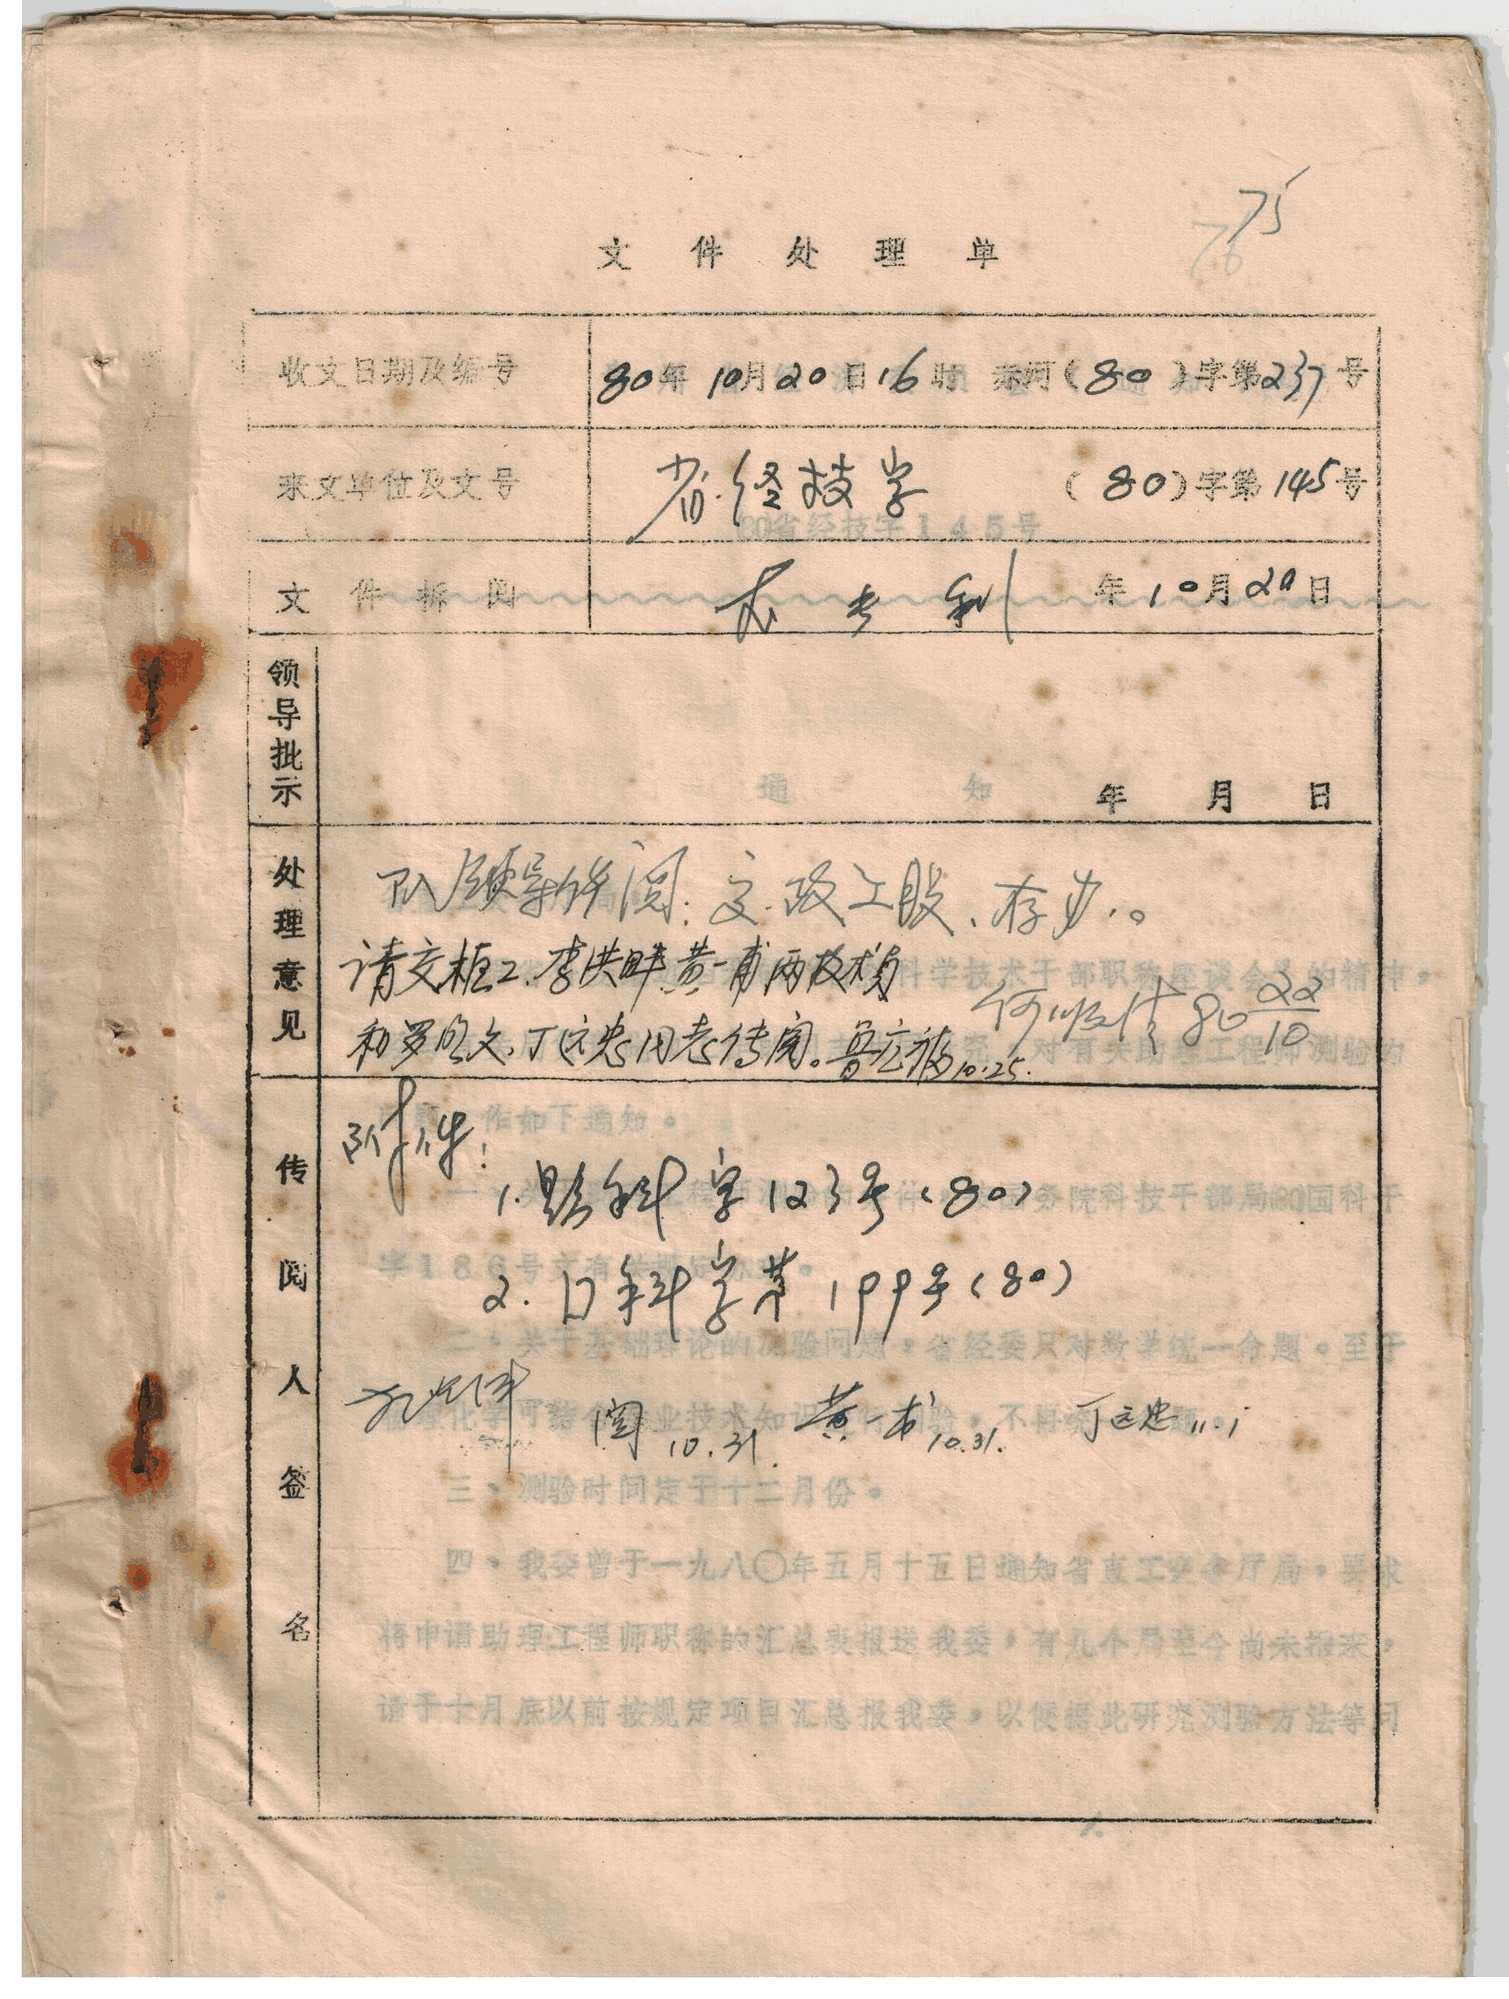 75
76
文件处理单
收文日期及编号 80年10月20日16时 赤河(80)字第237号
来文单位及文号 省经技字 (80)字第145号
80省经技字145号
文件拆阅 年10月20日
领导批示
通知
年 月 日
处理意见
队领导传阅:文政工股、存办。
请交桓工、李洪畔黄一甫两技术员
科学技术干部职称座谈会
的精神,
何顺清80 22/10
和罗文、丁远忠同志传阅。10.25.
对有关助理工程师测验的
作如下通知。
传阅人签名
附件:
1.黔科字123号(80)
国务院科技干部局80国科干
字186号文有
2.口科字第199号(80)
二、关于基础理论的测验问题,省经委只对数学统一命题。至于
化学可结合专业技术知识
验,不再
阅10.31. 黄一甫10.31. 丁远忠11.1
三、测验时间定于十二月份。
四、我委曾于一九八〇年五月十五日通知省直工交各厅局,要求
将申请助理工程师职称的汇总表报送我委,有几个局至今尚未报来,
请于十月底以前按规定项目汇总报我委,以便据此研究测验方法等问